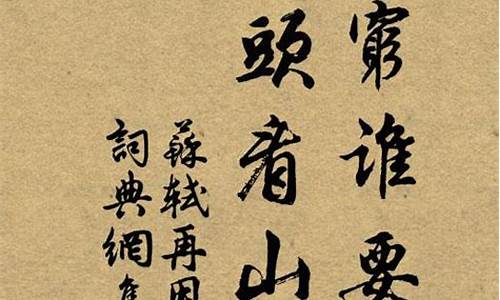 窮谁要
頭看山
蘇轼再因
詞典網